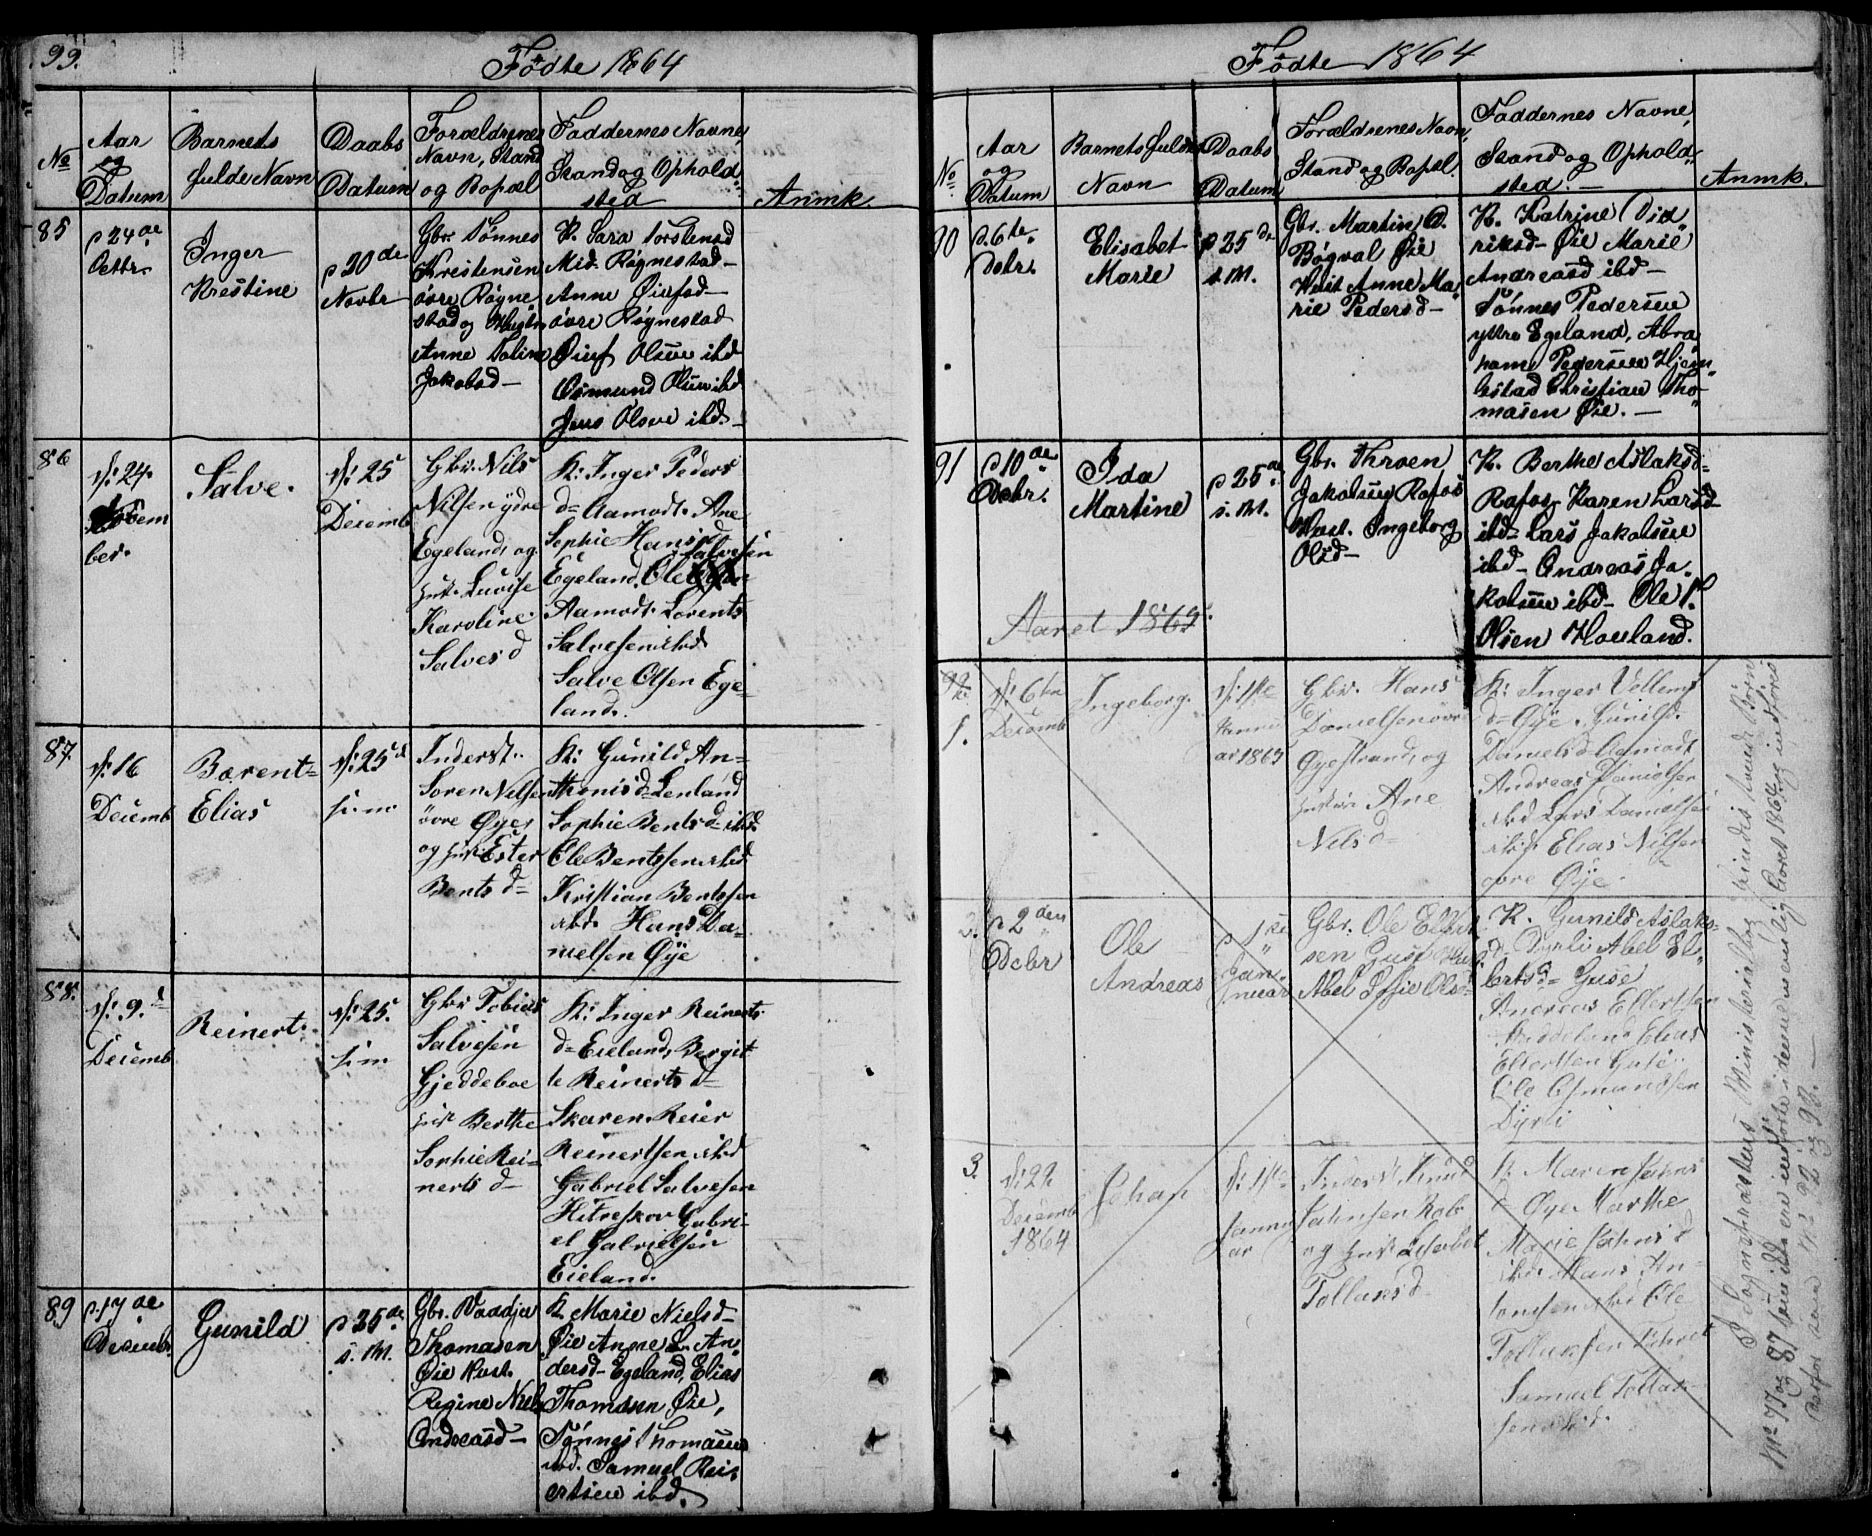 99.
Fødte 1864
No
Aar
og
Datum
Barnets
fulde Navn
Daabs
Datum
Forældrenes
Navn, Stand
og Bopæl
Faddernes Navne,
Stand og Ophold-
sted
Anmk.
85
p 24de
Octbr.
Inger
Krestine
p 20de
Novbr
Gbr. Tønnes
Krestensen
øvre Røgne
stad og Hust
Anne Taline
Jakobsd
K. Sara Torstensd
Mid. Røgnestad
Anne
øvre Røgnestad
Olsen ibd
Osmund Olsen ibd
Jens Olsen ibd.
86
d: 24.
ber.
Salve.
d: 25
Decemb
Gbr. Nils
Nilsen ydre
Egeland, og
hust. Lovise
Karoline
Salvesd
K: Inger Peders
d= Aamodt. Ane
Sophie Hansd
Salvesen
Egeland. Ole
Aamodt. Lorents
Salvesen ibd
Salve Olsen Ege-
land.
87.
d: 16
Decemb
Barent=
Elias
d: 25
s: m:
Inderst:
Soren Nilsen
övre Öye,
og hust Ester
Bents d=
K: Gunild An-
thonis d= Lenland
Sophie Bents d= ibd.
Ole Bentssen ibd
Kristian Bentssen
ibd. Hans Da-
nielsen Öÿe
88.
d: 9.
Decemb
Reinert.
d: 25.
s: m
Gbr Tobias
Salvesen
Gjeddeboe
hust Berthe
Sophie Rei-
nerts d-
K: Inger Reinerts
d= Eieland, Bergit-
te Reinerts d-
Skaren. Reier
Reinertsen ibd
Gabriel Salvesen
Hitreskov Gabri-
el Gabrielsen
Eieland.
89
p. 17de
Decembr
Gunild
p 25de
s. M.
Gbr. Daadja
Thomasen
Øie Hust.
Regine Niels
Andreasd-
K. Marie Nielsd-
Øie Anne L. An-
dersd- Egeland, Elias
Thomasen Øie,
Tønnes Thomasen
ibd. Samuel Rei-
ertsen ibd.
Fødte 1864
No.
Aar
og
Datum
Barnets fulde
Navn
Daabs
Datum
Forældrenes Navn,
Stand og Bopæl.
Faddernes Navne,
Stand og Ophold-
sted.
Anmk.
90
p. 6te
Debr.
Elisabet
Marie
p 25de
s. M.
Gbr. Martin A.
Bøgval Øie
Hust Anne Ma-
rie Pedersd-
K. Katrine Did-
riksd- Øie Marie
Andreasd ibd-
Tønnes Pedersen
yttre Egeland, Abra
ham Pedersen Hjem-
bstad Christian Tho-
masen Øie.
91
p 10de
Debr.
Ida
Martine
p 25de
s. M.
Gbr. Throen
Jakobsen Rafos
Hust. Ingeborg
Olsd-
K. Berthe Aslaksd=
Rafos, Karen Larsd-
ibd= Lars Jakobsen
ibd- Andreas Ja-
kobsen ibd- Ole
Olsen Houland.
Aaret 1865.
92
1.
d: 6te
Decemb
Ingeborg.
d: 1ste
Janu
ar 1865
Gbr. Hans
Danielsen övre
Oyestrand, og
hustru Ane
Nilsd=
K: Inger Vellems
d= Oÿe. Gunild
Daniels d Aamodt
Andreas Danielsen
ibd Lars Danielsen
ibd. Elias Nilsen
ovre Öÿe.
2.
p 2den
Debr
Ole
Andreas
p 1ste
Jan-
nuar
Gbr. Ole Ellert
sen Guse Hust
Abel Sofie Olsd=
K. Gunild Aslaks-
d. Dyrli Abel El-
lertsd= Guse
Andreas Ellertsen
Elias
Ellertsen Guse
Ole Osmundsen
Dyrli
3.
d: 22
Decemb
1864
Johan
d: 1ste
Janu
ar
Inderst Knud
Jahnsen Rob
og hust. Liserbet
Tollaksd
K: Maren Jahns
d Oye Marthe
Marie Jahns d
ibd. Hans An-
tonsen ibd Ole
Tollaksen
Samuel Tollak-
sen ibd.
I Sognepræstens Ministerialbog findes tvende Børn
No 77 og 87 som ikke ere indførte i denne
sena No 92 og 93. -